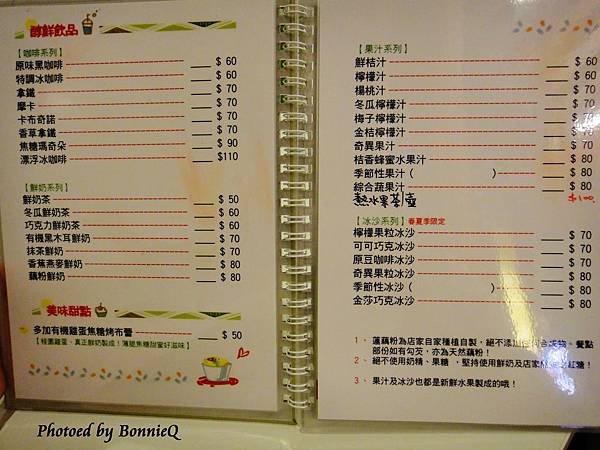 醇鮮飲品
【咖啡系列】
原味黑咖啡 $ 60
特調冰咖啡 $ 60
拿鐵 $ 70
摩卡 $ 70
卡布奇諾 $ 70
香草拿鐵 $ 70
焦糖瑪奇朵 $ 90
漂浮冰咖啡 $110
【鮮奶系列】
鮮奶茶 $ 50
冬瓜鮮奶茶 $ 60
巧克力鮮奶茶 $ 60
有機黑木耳鮮奶 $ 70
抹茶鮮奶 $ 70
香蕉燕麥鮮奶 $ 80
藕粉鮮奶 $ 80
美味甜點
多加有機雞蛋焦糖烤布蕾 $ 50
【桂園雞蛋、真正鮮奶製成！薄脆焦糖甜蜜好滋味】
【果汁系列】
鮮桔汁 $ 60
檸檬汁 $ 60
楊桃汁 $ 70
冬瓜檸檬汁 $ 70
梅子檸檬汁 $ 70
金桔檸檬汁 $ 70
奇異果汁 $ 70
桔香蜂蜜水果汁 $ 80
季節性果汁 ( )- $ 80
綜合蔬果汁 $ 80
熱水果茶/壺 $100
【冰沙系列】春夏季限定
檸檬果粒冰沙 $ 70
可可巧克冰沙 $ 70
原豆咖啡冰沙 $ 70
奇異果粒冰沙 $ 80
季節性冰沙 ( )- $ 80
金莎巧克冰沙 $ 80
1、 蓮藕粉為店家自家種植自製，絕不添加任何合成物。餐點
部份如有勾芡，亦為天然藕粉！
2、 絕不使用奶精、果糖 ，堅持使用鮮奶及店家
3、 果汁及冰沙也都是新鮮水果製成的哦！
Photoed by BonnieQ